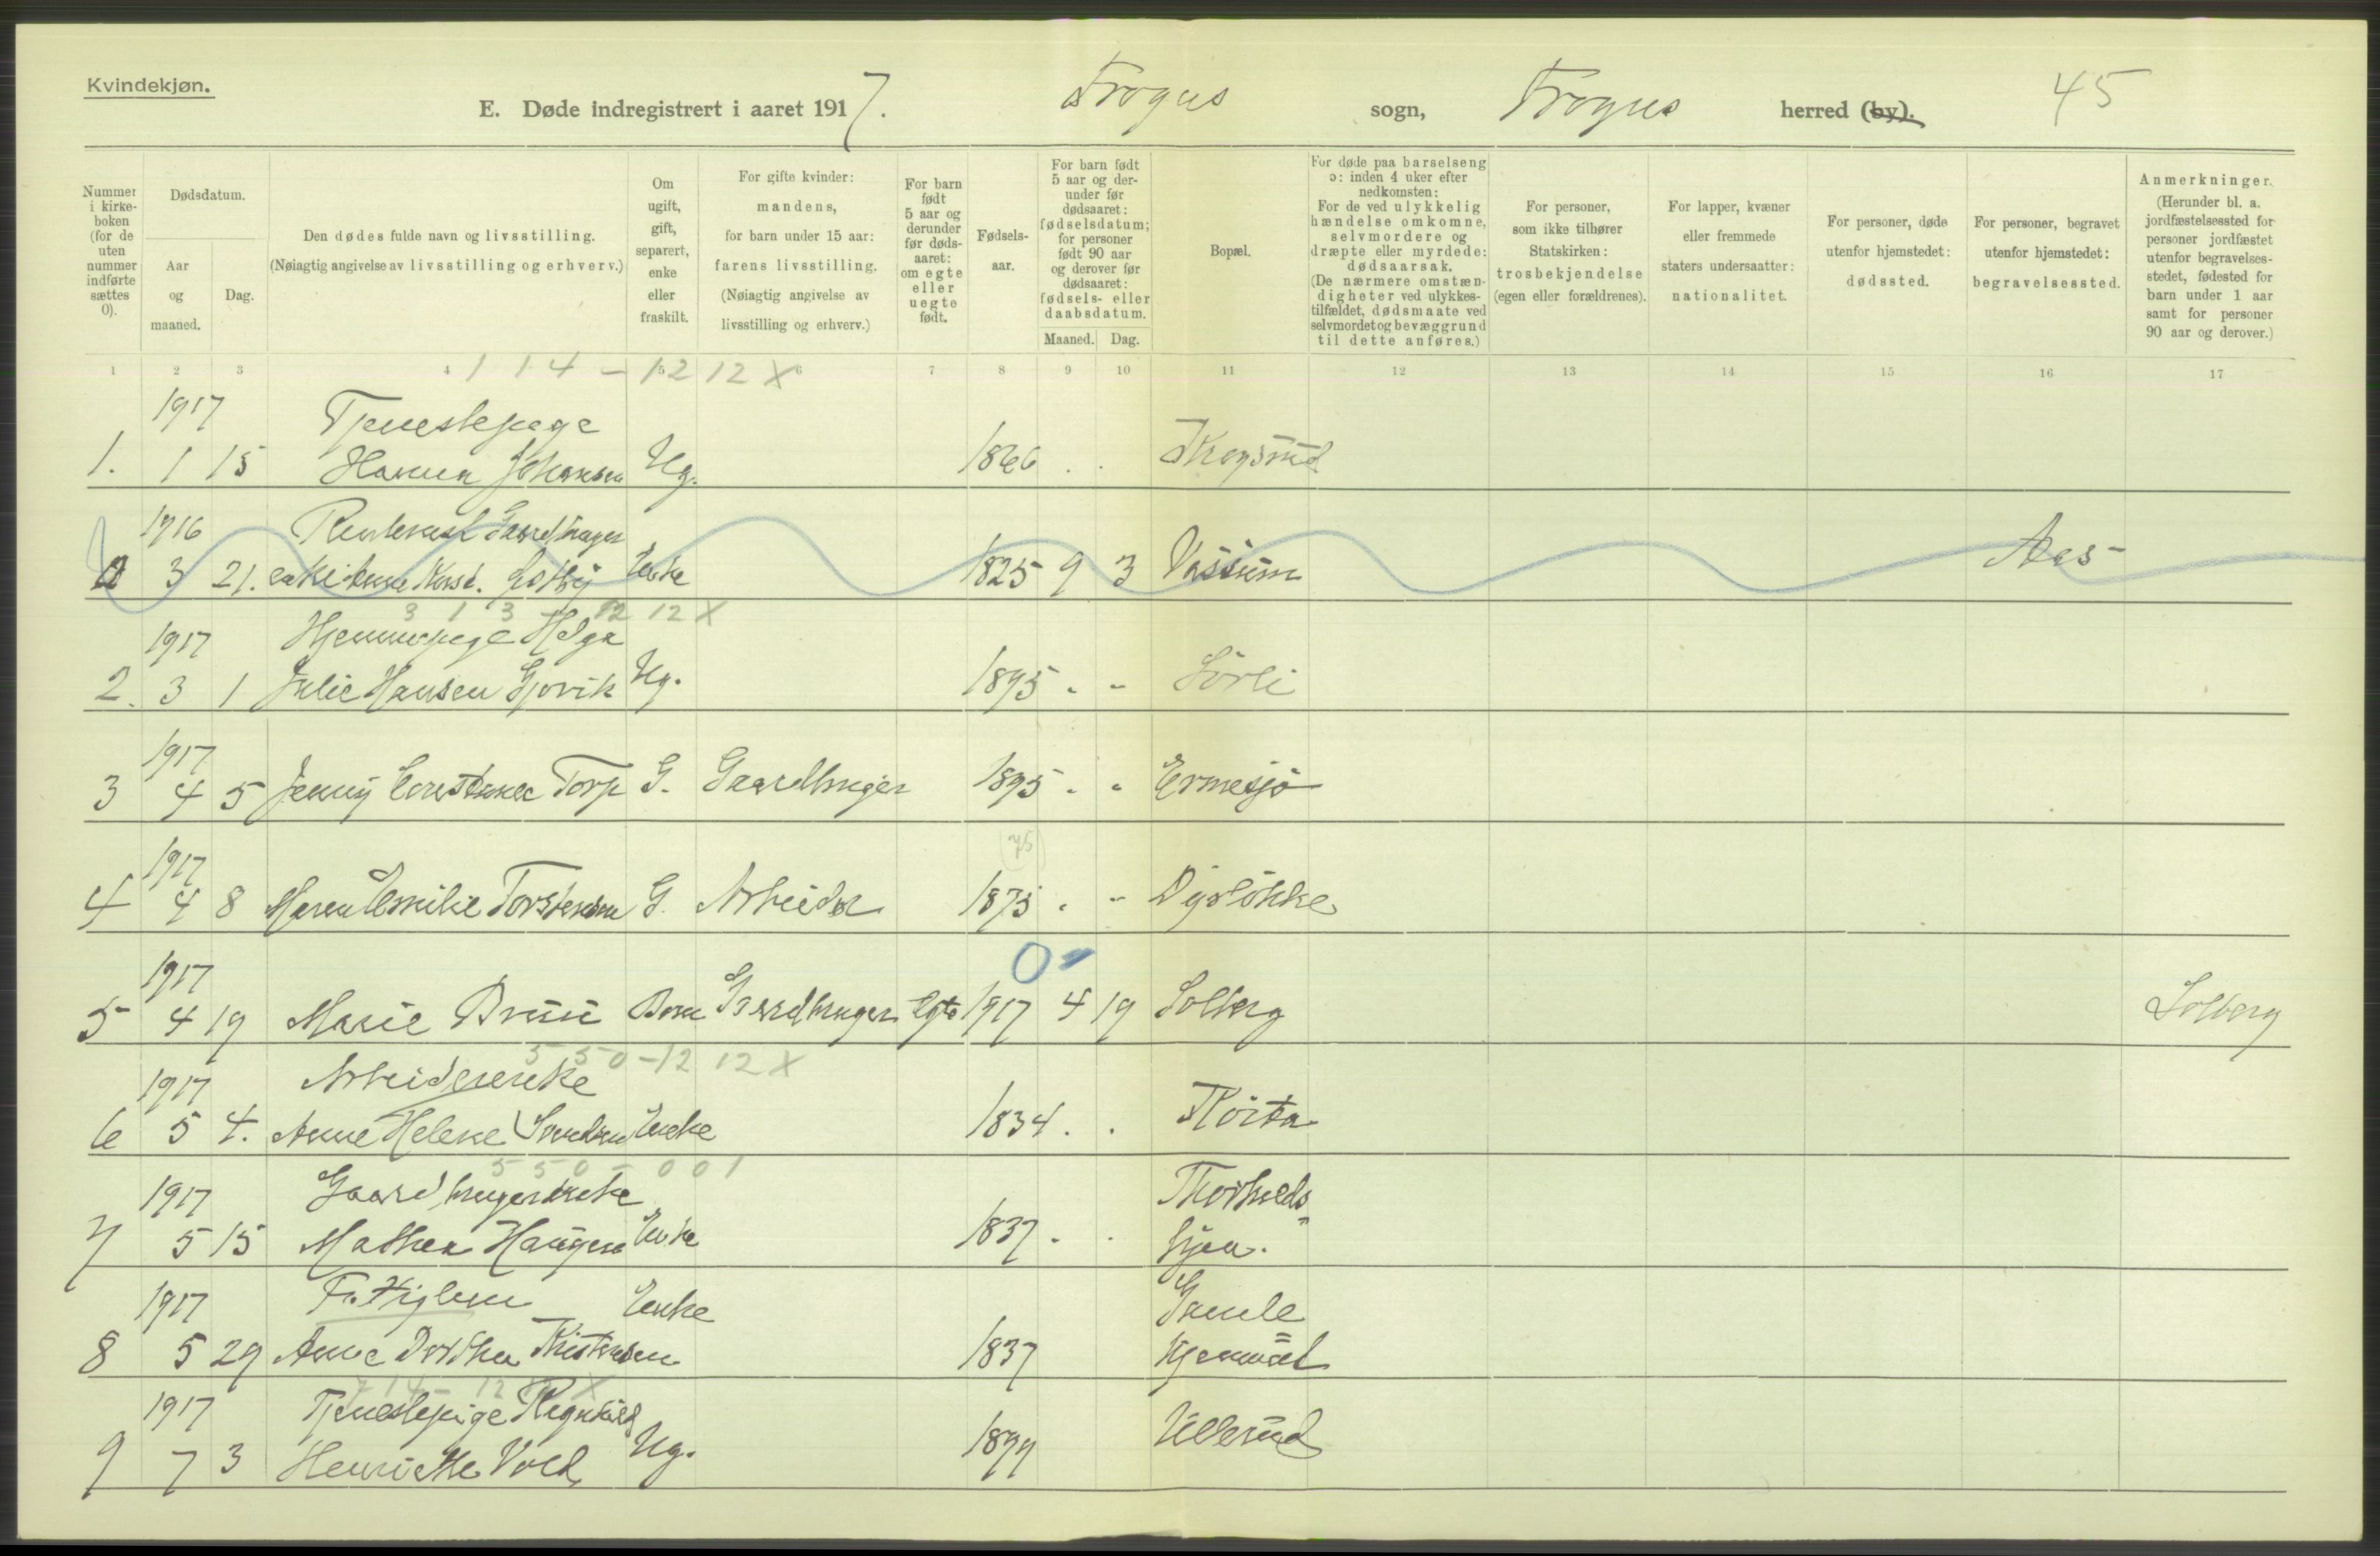 Kvindekjøn.
E. Døde indregistrert i aaret 1917. Frogns sogn, Frogns herred (by). 45
Nummer i kirke-boken (for de uten nummer indførte sættes 0).
Dødsdatum.
Aar og maaned.
Dag.
Den dødes fulde navn og livsstilling.
(Nøiagtig angivelse av livsstilling og erhverv.)
Om ugift, gift, separert, enke eller fraskilt.
For gifte kvinder: mandens, for barn under 15 aar: farens livsstilling. (Nøiagtig angivelse av livsstilling og erhverv.)
For barn født 5 aar og derunder før døds-aaret: om egte eller uegte født.
Fødsels-aar.
For barn født 5 aar og der-under før dødsaaret: fødselsdatum; for personer født 90 aar og derover før dødsaaret: fødsels- eller daabsdatum.
Maaned. Dag.
Bopæl.
For døde paa barselseng ɔ: inden 4 uker efter nedkomsten:
For de ved ulykkelig hændelse omkomne, selvmordere og dræpte eller myrdede: dødsaarsak.
(De nærmere omstæn-digheter ved ulykkes-tilfældet, dødsmaate ved selvmordet og bevæggrund til dette anføres.)
For personer, som ikke tilhører Statskirken: trosbekjendelse (egen eller forældrenes).
For lapper, kvæner eller fremmede staters undersaatter: nationalitet.
For personer, døde utenfor hjemstedet: dødssted.
For personer, begravet utenfor hjemstedet: begravelsessted.
Anmerkninger.
(Herunder bl. a. jordfæstelsessted for personer jordfæstet utenfor begravelses-stedet, fødested for barn under 1 aar samt for personer 90 aar og derover.)
1 2 3 4 5 6 7 8 9 10 11 12 13 14 15 16 17
114 - 12 12 X
1917 Tjenestepige
1. 1 15 Hanna Johansen Ug. 1866 . . Skogsrud
1916 Gaardbruger
0 3 21. enke Anne Enke 1825 9 3 Vassum Aas
3 1 3 - 12 12 X
1917 Hjemmepige Helga
2. 3 1 Julie Hansen Gjøvik Ug. 1895 . - Sørli
1917
3 4 5 Jenny Torp G. Gaardbruger 1895 . . Ermesjø
1917 75
4 4 8 Maren Emilie Torstensen G. Arbeider 1875 . - Dysløkke
1917 0
5 4 19 Marie Barn Gaardbruger Egte 1917 4 19 Solberg Solberg
5 5 0 - 12 12 X
1917 Arbeiderenke
6 5 4. Anne Helene Svendsen Enke 1834 . .
5 5 0 - 0 0 1
1917 Gaardbrugerenke
7 5 15 Mathea Haugen Enke 1837 . .
1917 Fattiglem Enke Gamle
8 5 29 Anne Dorthea Kristensen 1837
7 1 4 - 12 X
1917 Tjenestepige Ragnhild
9 7 3 Henriette Vold Ug. 1899 Ullerud